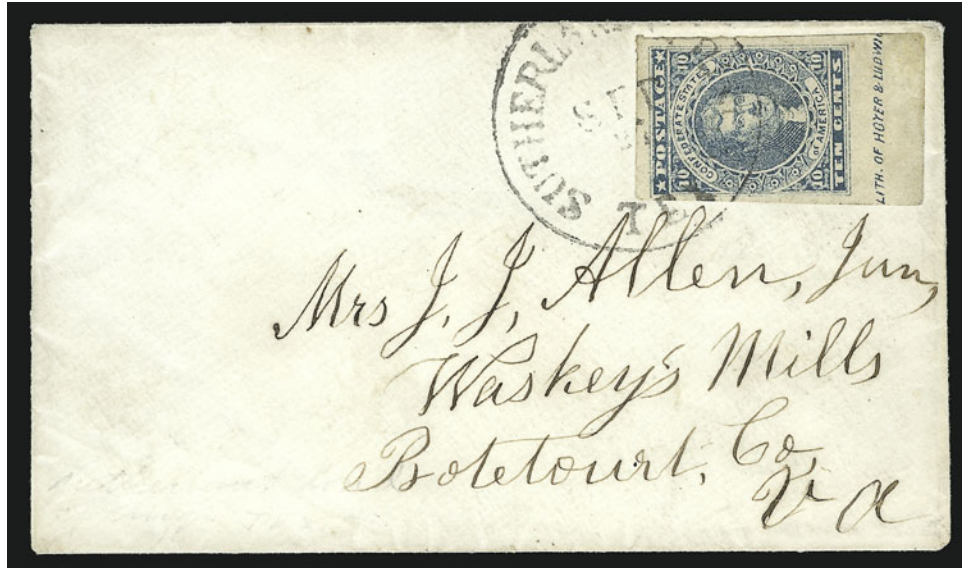 SUTHERL
TEX
★ POSTAGE ★
10 10
CONFEDERATE STATES
of AMERICA
10 10
TEN CENTS
LITH. OF HOYER & LUDWIG
Mrs J. J. Allen, Jun,
Waskey's Mills
Botetourt, Co,
Va